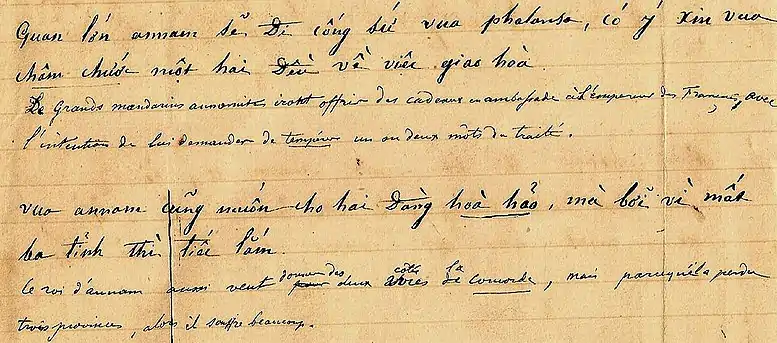 Quan lớn annam sẽ Đi cống sứ vua phalansa, có ý xin vua
châm chước một hai Đều về việc giao hoà.
De Grands mandarins annamites iront offrir des cadeaux en ambassade à l'empereur des Français, avec
l'intention de lui demander de tempérer un ou deux mots du traité.
vua annam cũng muốn cho hai Đàng hoà hảo, mà bởi vì mất
ba tỉnh thì tiếc lắm.
le roi d'annam aussi veut donner des deux côtés la concorde, mais parcequ'il a perdu
trois provinces, alors il souffre beaucoup.